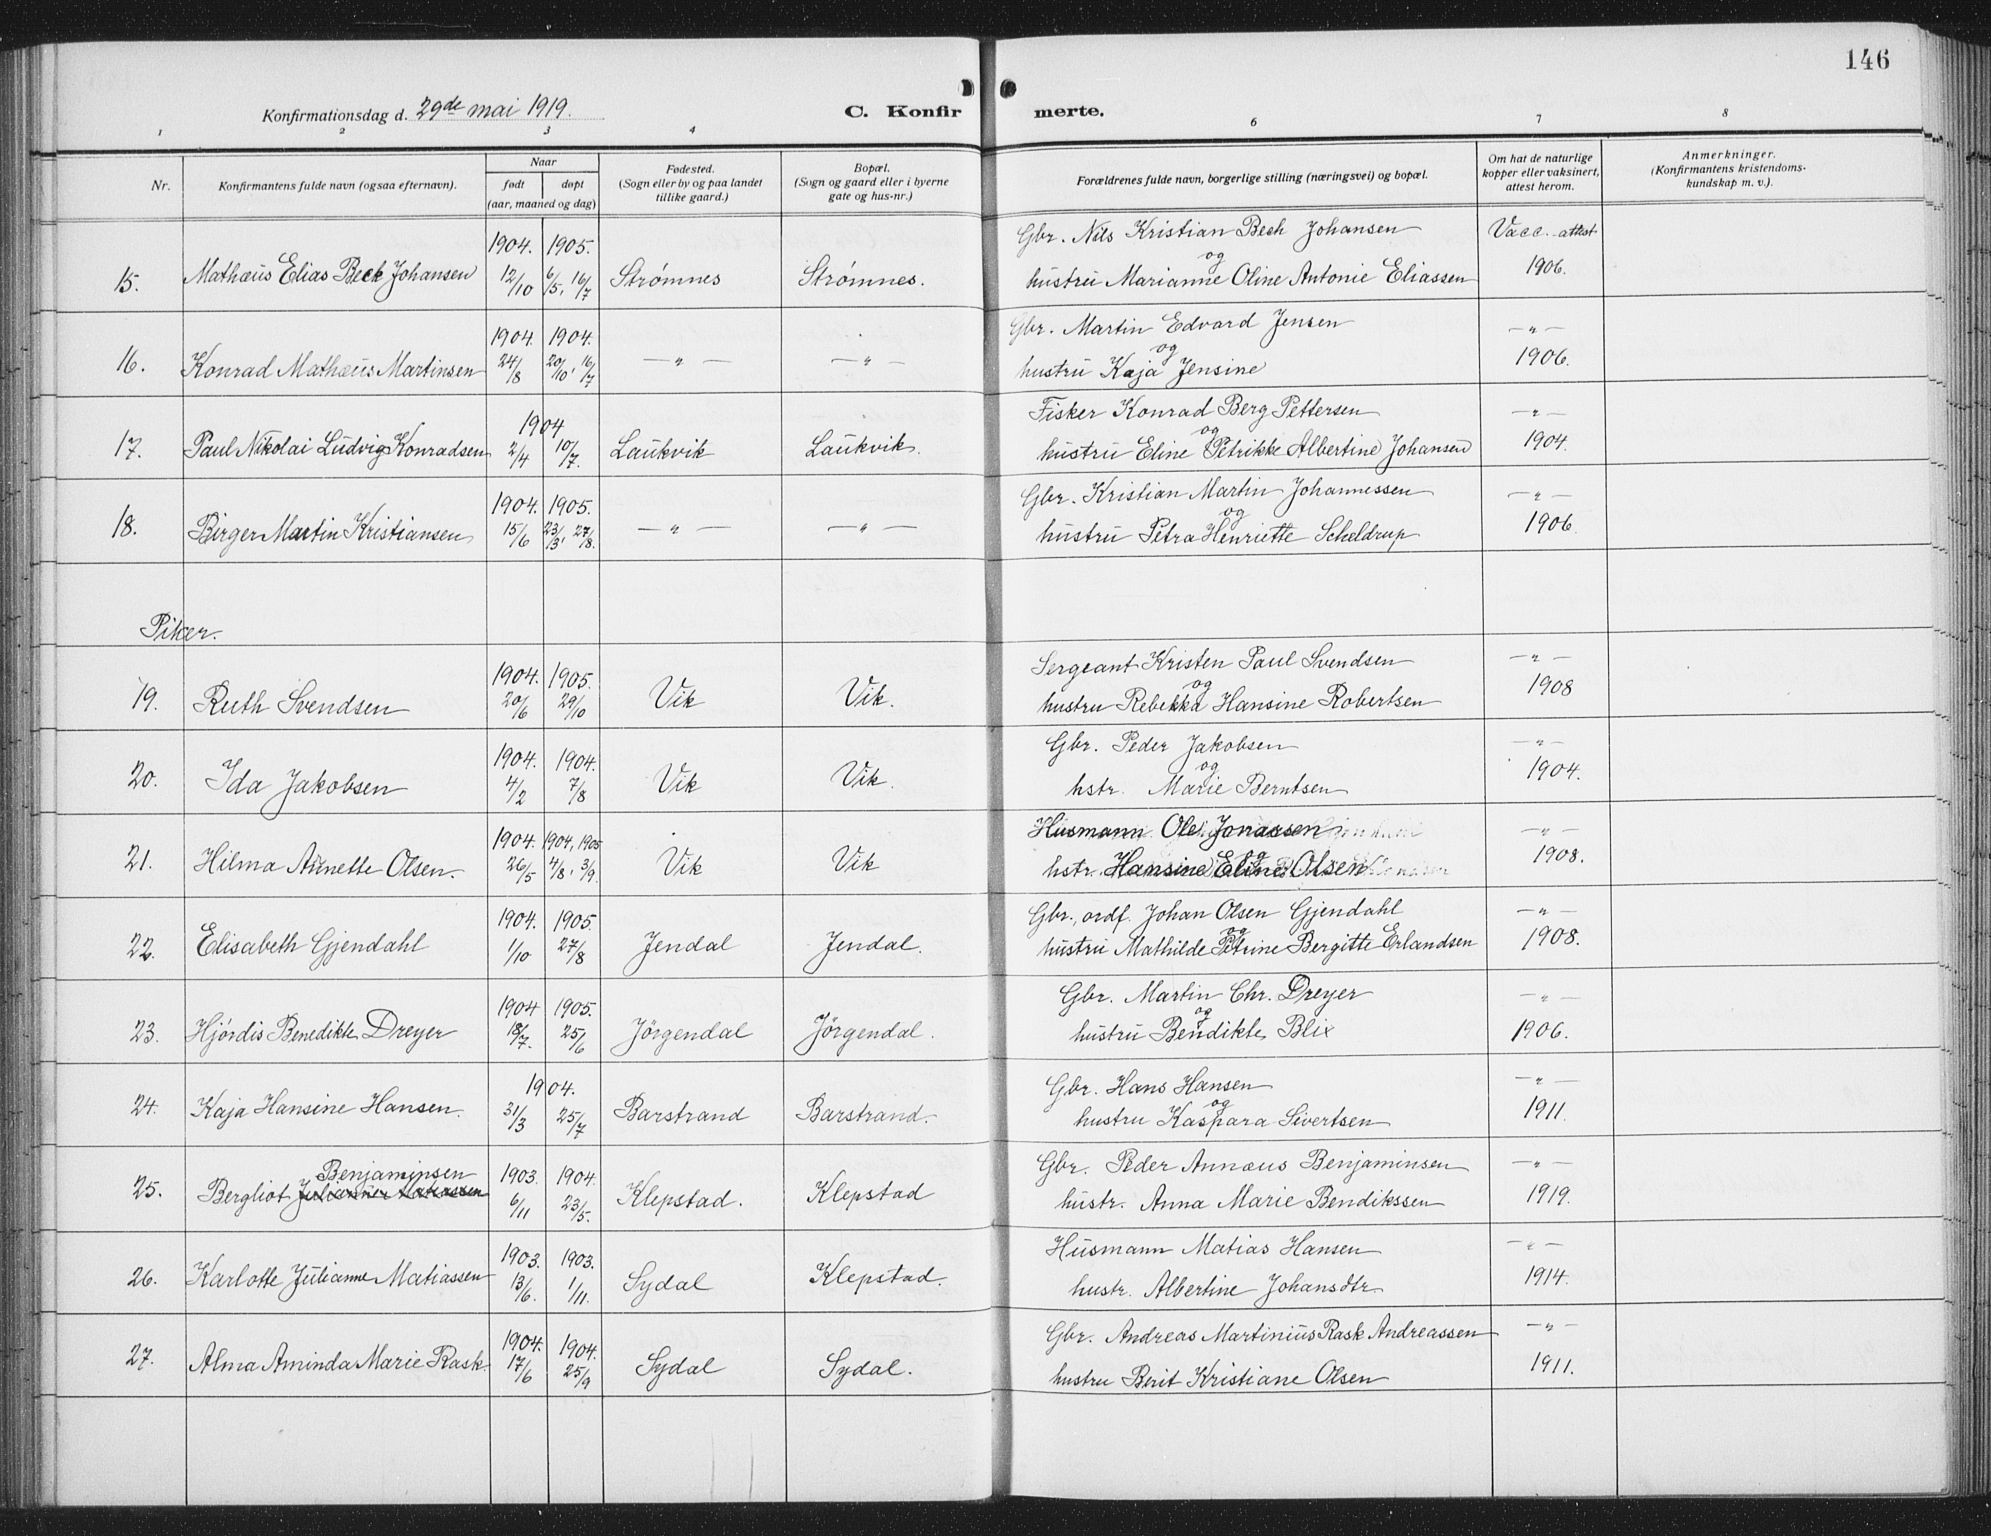 146
Konfirmationsdag d. 29de mai 1919.
C. Konfirmerte.
1 2 3 4 6 7 8
Nr. Konfirmantens fulde navn (ogsaa efternavn). Naar født døpt (aar, maaned og dag) Fødested. (Sogn eller by og paa landet tillike gaard.) Bopæl. (Sogn og gaard eller i byerne gate og hus-nr.) Forældrenes fulde navn, borgerlige stilling (næringsvei) og bopæl. Om hat de naturlige kopper eller vaksinert, attest herom. Anmerkninger. (Konfirmantens kristendomskundskap m. v.).
1904. 1905. Gbr. Nils Kristian Bech Johansen Vacc. attest
15. Mathæus Elias Beck Johansen 12/10 6/5, 16/7 Strømnes Strømnes. og hustru Marianne Oline Antonie Eliassen 1906.
1904. 1904. Gbr. Martin Edvard Jensen —„—
16. Konrad Mathæus Martinsen 24/8 20/10, 16/7 —„— —„— og hustru Kaja Jensine 1906.
1904 Fisker Konrad Berg Pettersen —„—
17. Paul Nikolai Ludvig Konradsen 2/4 10/7. Laukvik Laukvik. og hustru Eline Petrikke Albertine Johansen 1904.
1904. 1905. Gbr. Kristian Martin Johannessen —„—
18. Birger Martin Kristiansen 15/6 23/3, 27/8. —„— —„— og hustru Petra Henriette Scheldrup 1906.
Piker.
1904. 1905. Sergeant Kristen Paul Svendsen —„—
19. Ruth Svendsen 20/6 29/10 Vik Vik. og hustru Rebekka Hansine Robertsen 1908
1904. 1904. Gbr. Peder Jakobsen —„—
20. Ida Jakobsen 4/2 7/8 Vik Vik. og hstr. Marie Berntsen 1904.
1904. 1904, 1905 Husmann Ole Jonassen —„—
21. Hilma Annette Olsen. 26/5 4/8, 3/9. Vik Vik og hstr. Hansine Eline Olsen 1908.
1904. 1905. Gbr., ordf. Johan Olsen Gjendahl —„—
22. Elisabeth Gjendahl 1/10 27/8 Jendal Jendal. og hustru Mathilde Petrine Bergitte Erlandsen 1908.
1904 1905. Gbr. Martin Chr. Dreyer —„—
23. Hjørdis Benedikte Dreyer 18/7. 25/6 Jörgendal Jörgendal. og hustru Bendikte Blix 1906.
1904. Gbr. Hans Hansen —„—
24. Kaja Hansine Hansen. 31/3 25/7 Barstrand Barstrand. og hustru Kaspara Sivertsen 1911.
Benjaminsen 1903. 1904. Gbr. Peder Annæus Benjaminsen —„—
25. Bergliot Julianne Matiassen 6/11 23/5. Klepstad. Klepstad hustr. Anna Marie Bendikssen 1919.
1903. 1903. Husmann Matias Hansen —„—
26. Karlotte Julianne Matiassen 13/6. 1/11. Sydal Klepstad. hustr. Albertine Johansdtr 1914.
1904. 1904. Gbr. Andreas Martinius Rask Andreassen —„—
27. Alma Aminda Marie Rask 17/6 25/9 Sydal Sydal. hustru Berit Kristiane Olsen 1911.